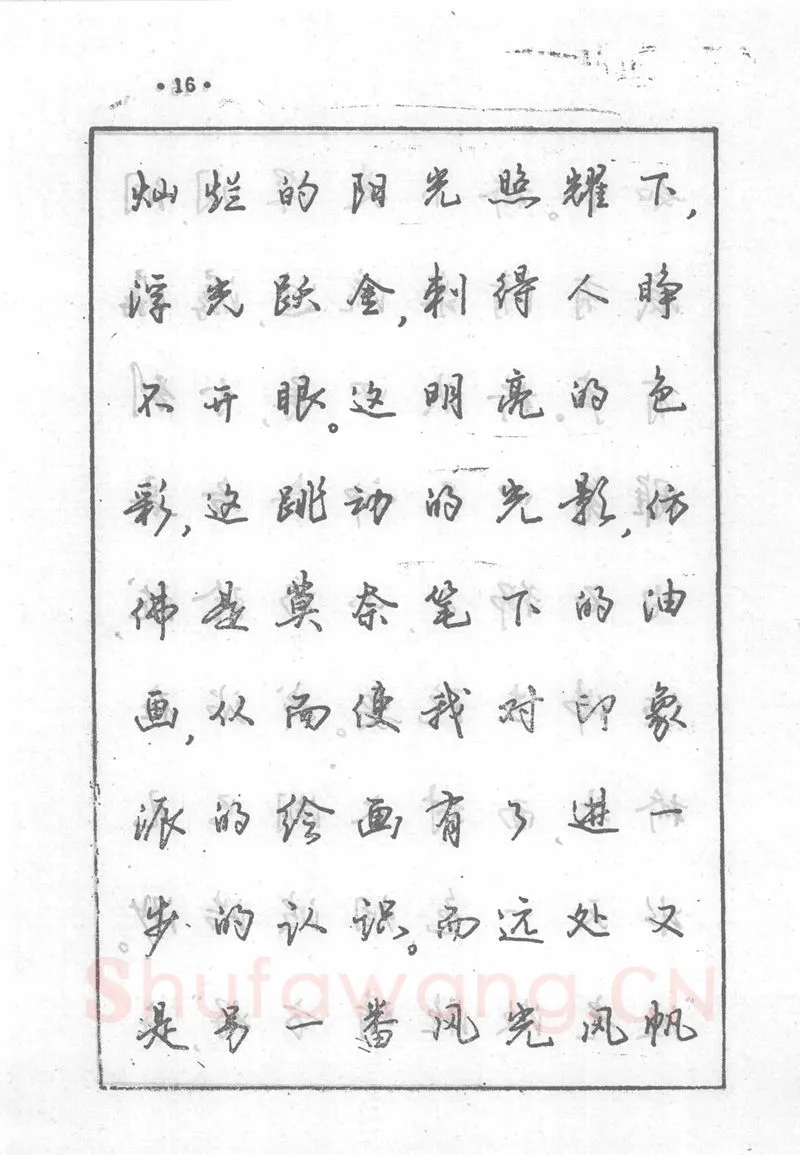 ·16·
灿烂的阳光照耀下,
浮光跃金,刺得人睁
不开眼。这明亮的色
彩,这跳动的光影,仿
佛是莫奈笔下的油
画,从而使我对印象
派的绘画有了进一
步的认识。而远处又
是另一番风光风帆
Shufawang.CN